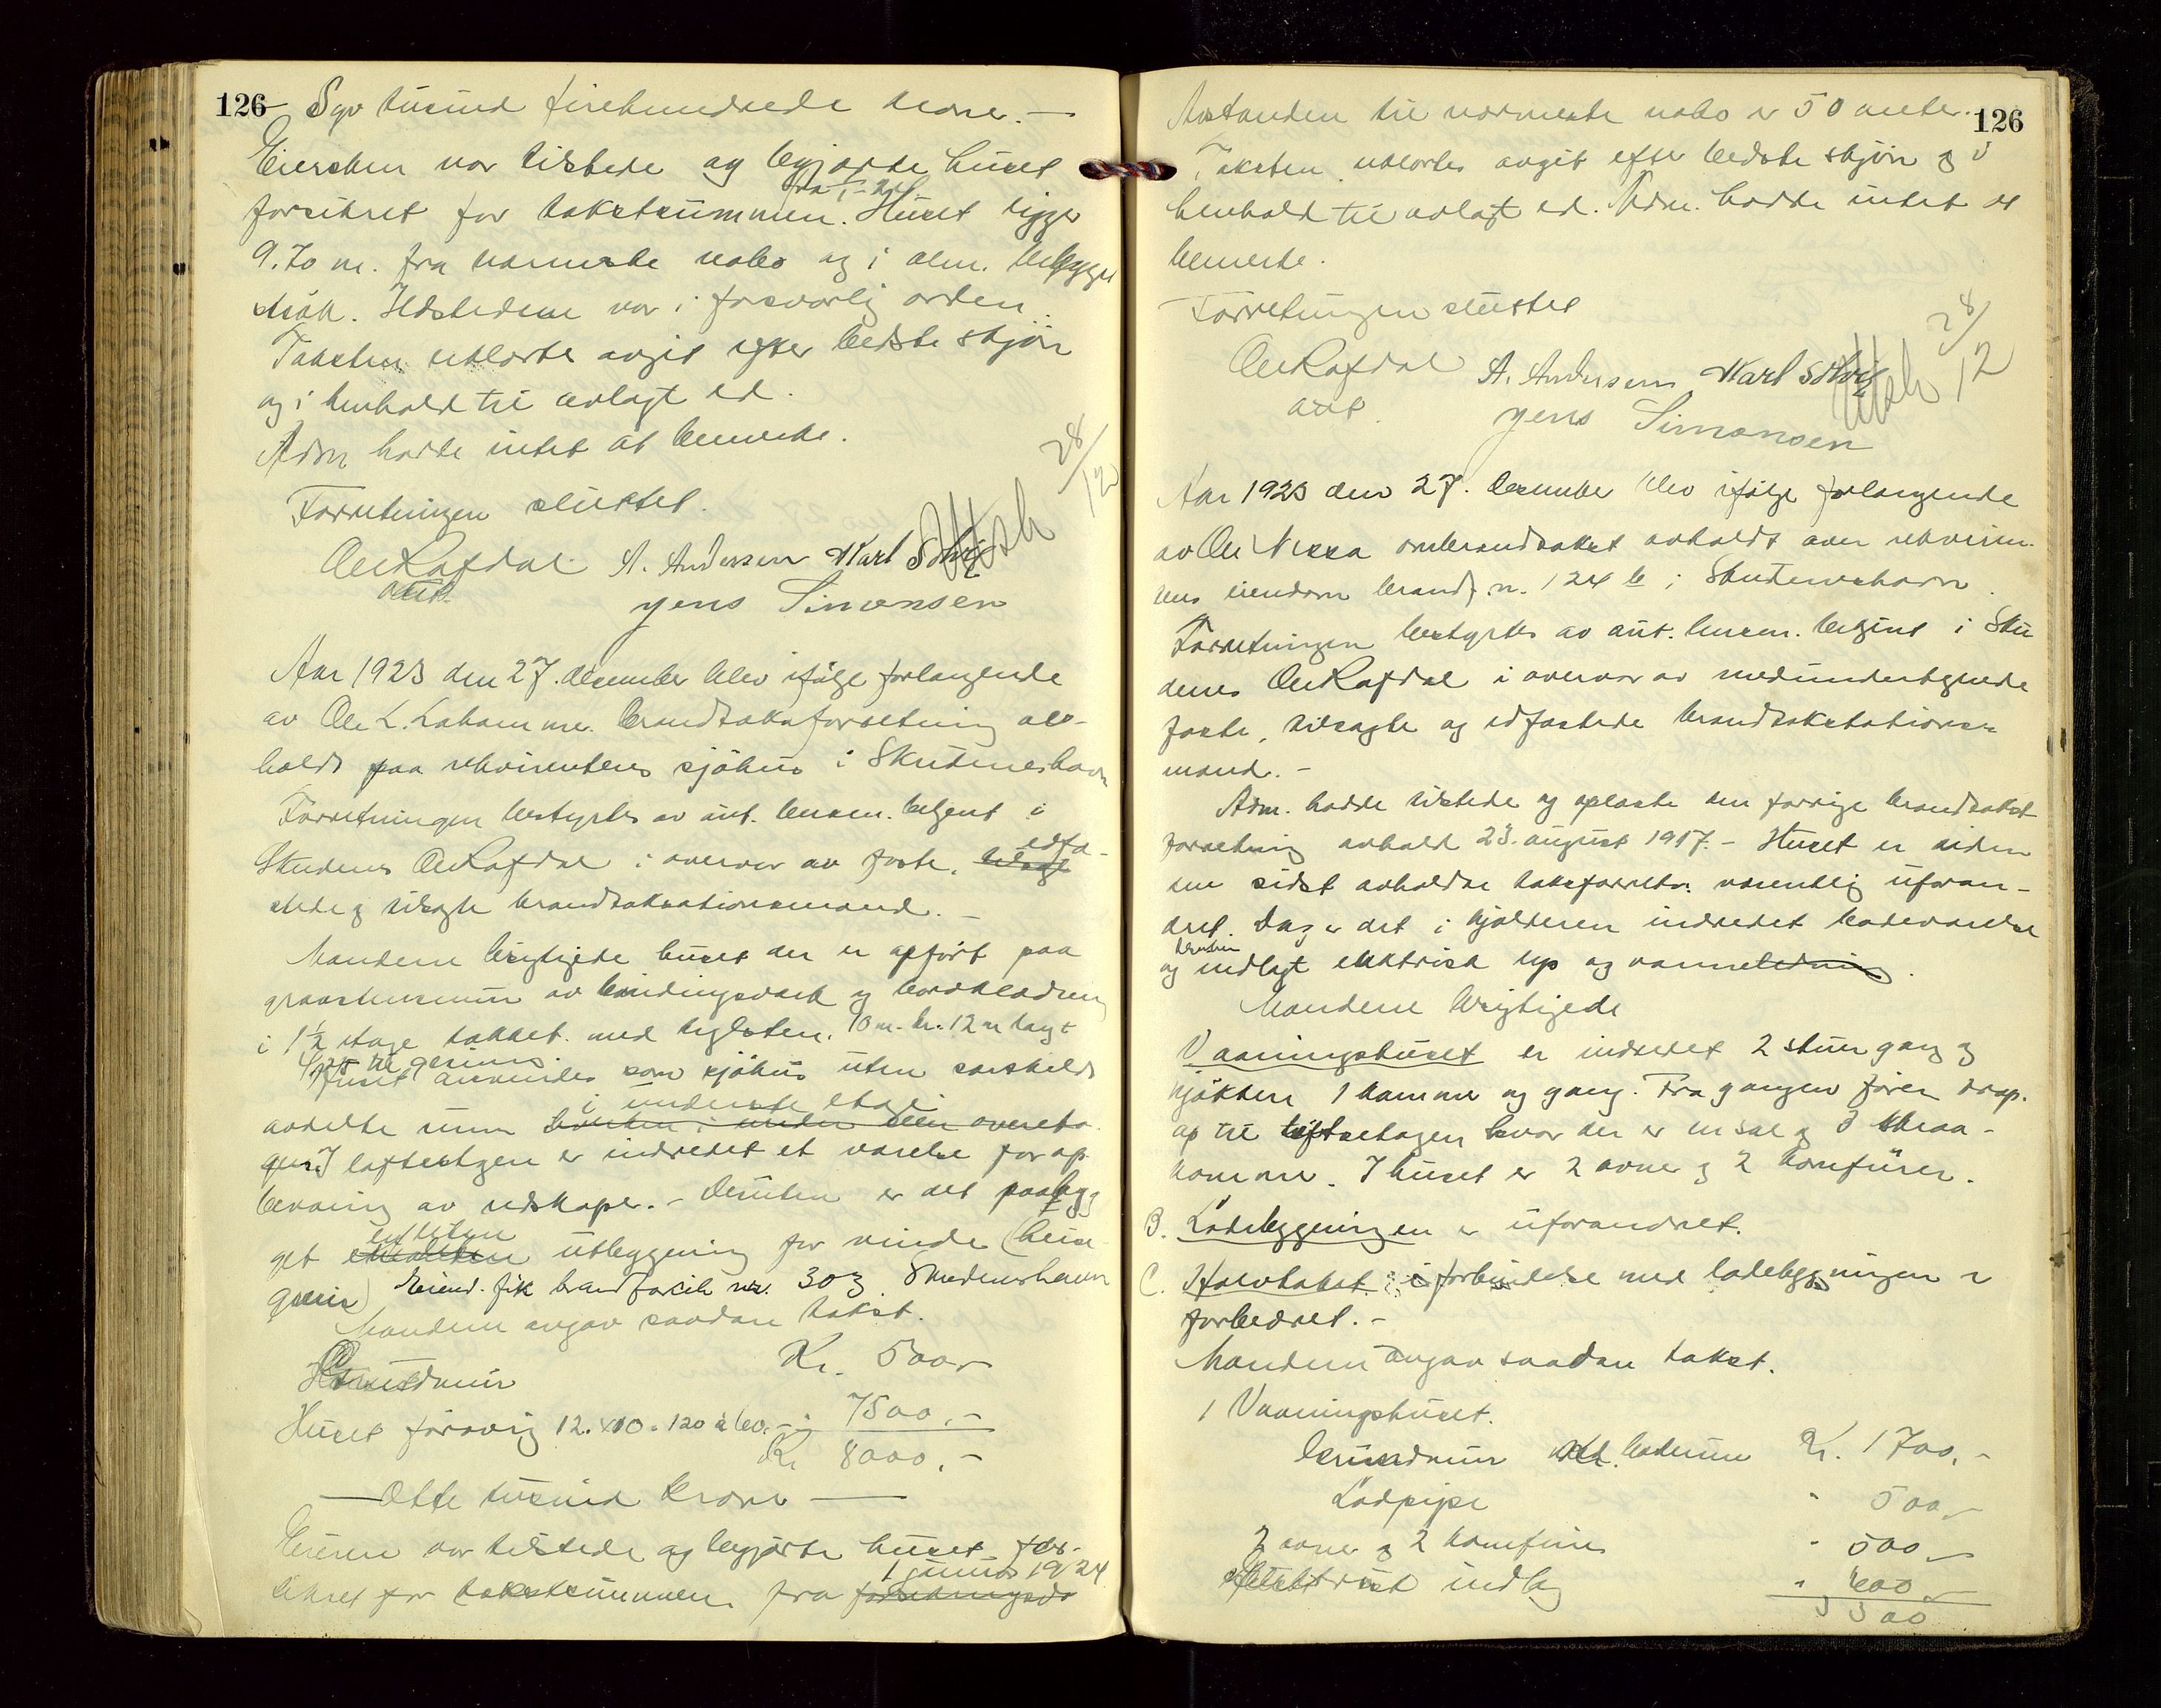 126 Syv tusind firehundrede kroner. —
Eiersken var tilstede og begjærte huset
forsikret for takstsummen. Huset ligger
9.70 m. fra nærmeste nabo og i alm. bebygget
strøk. Ildstedene var i forsvarlig orden.
Taksten utførtes avgit efter bedste skjøn
og i henhold til avlagt ed.
Adm hadde intet at bemerke.
28/12
Forretningen sluttet.
Ole Rafdal A. Andersen Karl
aut.
Jens Simonsen
Aar 1923 den 27. december blev ifølge forlangende
av Ole L. Lahamme. brandtakstforretning av-
holdt paa rekvirentens sjøhus i Skudeneshavn
Forretningen bestyrtes av aut. lensm. betjent i
edfæ-
Skudenes Ole Rafdal i overvær av faste,
stede og tilsagte brandtakstationsmænd. —
Mændene besigtigede huset der er opført paa
graastensmur av bindingsverk og bordklædning
i 1½ etage tækket med teglsten. 10 m. br. 12 m lang
til gesims.
Huset anvendes som sjøhus uten særskilt
i underste etage
avdelte rum
I loftsetagen er indredet et værelse for op-
bevaring av redskaper. — Desuten er det paabyg
en liten
get utbygning for vinde (heise
greie) Eiend. fik brandforsik nr. 303 Skudeneshavn
Mændene avgav saadan takst.
Grundmur Kr. 500,-
Huset forøvrig 12 x 10 = 120 à 60. — 7500. —
Kr 8000. —
— Otte tusind kroner —
Eieren var tilstede og begjærte huset for-
1 januar 1924
sikret for takstsummen fra forretningsda
Avstanden til nærmeste nabo er 50 meter. 126
Taksten utførtes avgit efter bedste skjøn og i
henhold til avlagt ed. Adm. hadde intet at
bemerke.
Forretningen sluttet
28/12
Ole Rafdal A. Andersen Karl
aut.
Jens Simonsen
Aar 1923 den 27. december blev ifølge forlangende
av Ole Nessa ombrandtakst avholdt over rekviren-
tens eiendom brandf. n. 124 b i Skudeneshavn.
Forretningen bestyrtes av aut. lensm. betjent i Sku
denes Ole Rafdal i overvær av medundertegnede
faste, tilsagte og edfæstede brandtakstations-
mænd. —
Adm. hadde tilstede og oplæste den forrige brandtakst
forretning avholdt 23. august 1917. — Huset er siden
den sidst avholdte takstforretn. væsentlig uforan-
dret. Dog er det i kjælderen indredet badeværelse
desuten
og indlagt elektrisk lys og varmeledning.
Mændene besigtigede
Vaaningshuset er indredet 2 stuer gang og
kjøkken 1 kammer og gang. Fra gangen fører trap.
op til loftsetagen hvor der er en sal og 3 skraa-
kammer. I huset er 2 ovner og 2 komfurer.
B. Ladebygningen er uforandret.
C. Halvtaket i forbindelse med ladebygningen er
forbedret. —
Mændene avgav saadan takst.
1 Vaaningshuset.
Grundmur med baderum Kr. 1700. —
Lodpipe " 500,-
2 ovner og 2 komfurer " 500,-
Elektrisk indlæg " 600,-
3300